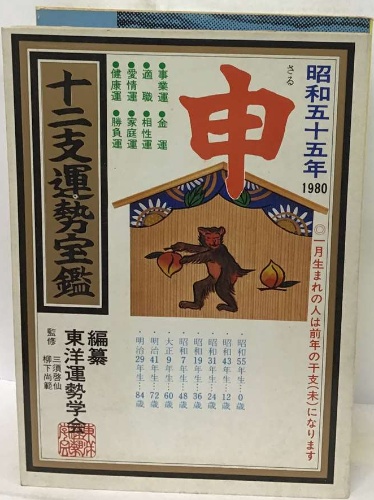 昭和五十五年
1980
◎一月生まれの人は前年の干支(未)になります
さる
申
●事業運
●金運
●適職
●相性運
●愛情運
●家庭運
●健康運
●勝負運
・昭和55年生…0歳
・昭和43年生…12歳
・昭和31年生…24歳
・昭和19年生…36歳
・昭和7年生…48歳
・大正9年生…60歳
・明治41年生…72歳
・明治29年生…84歳
十二支運勢宝鑑
編纂
東洋運勢学会
監修
三須啓仙
柳下尚範